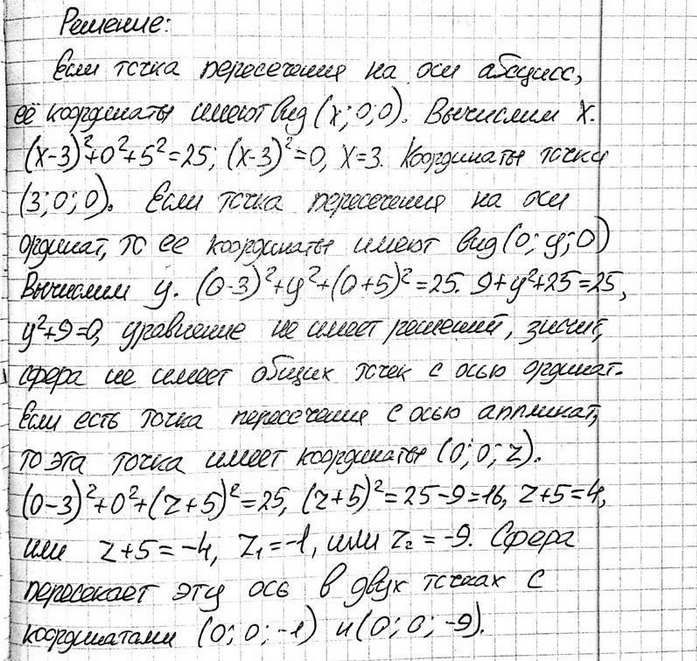 Решение:
Если точка пересечения на оси абсцисс,
её координаты имеют вид (x; 0; 0). Вычислим x.
(x-3)²+0²+5²=25; (x-3)²=0, x=3. Координаты точки
(3; 0; 0). Если точка пересечения на оси
ординат, то ее координаты имеют вид (0; y; 0)
Вычислим y. (0-3)²+y²+(0+5)²=25. 9+y²+25=25,
y²+9=0, уравнение не имеет решений, значит,
сфера не имеет общих точек с осью ординат.
Если есть точка пересечения с осью аппликат,
то эта точка имеет координаты (0; 0; z).
(0-3)²+0²+(z+5)²=25, (z+5)²=25-9=16, z+5=4,
или z+5=-4, z₁=-1, или z₂=-9. Сфера
пересекает эту ось в двух точках с
координатами (0; 0; -1) и (0; 0; -9).